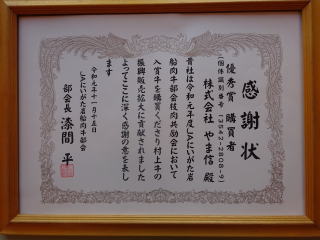 感謝状
優秀賞 購買者
(個体識別番号 13542-2808-9)
株式会社 やま信 殿
貴社は令和元年度JAにいがた岩
船肉牛部会枝肉共励会において
入賞牛を購買くださり村上牛の
振興販売拡大に貢献されました
よってここに深く感謝の意を表し
ます
令和元年十一月十五日
JAにいがた岩船肉牛部会
部会長 漆間 平